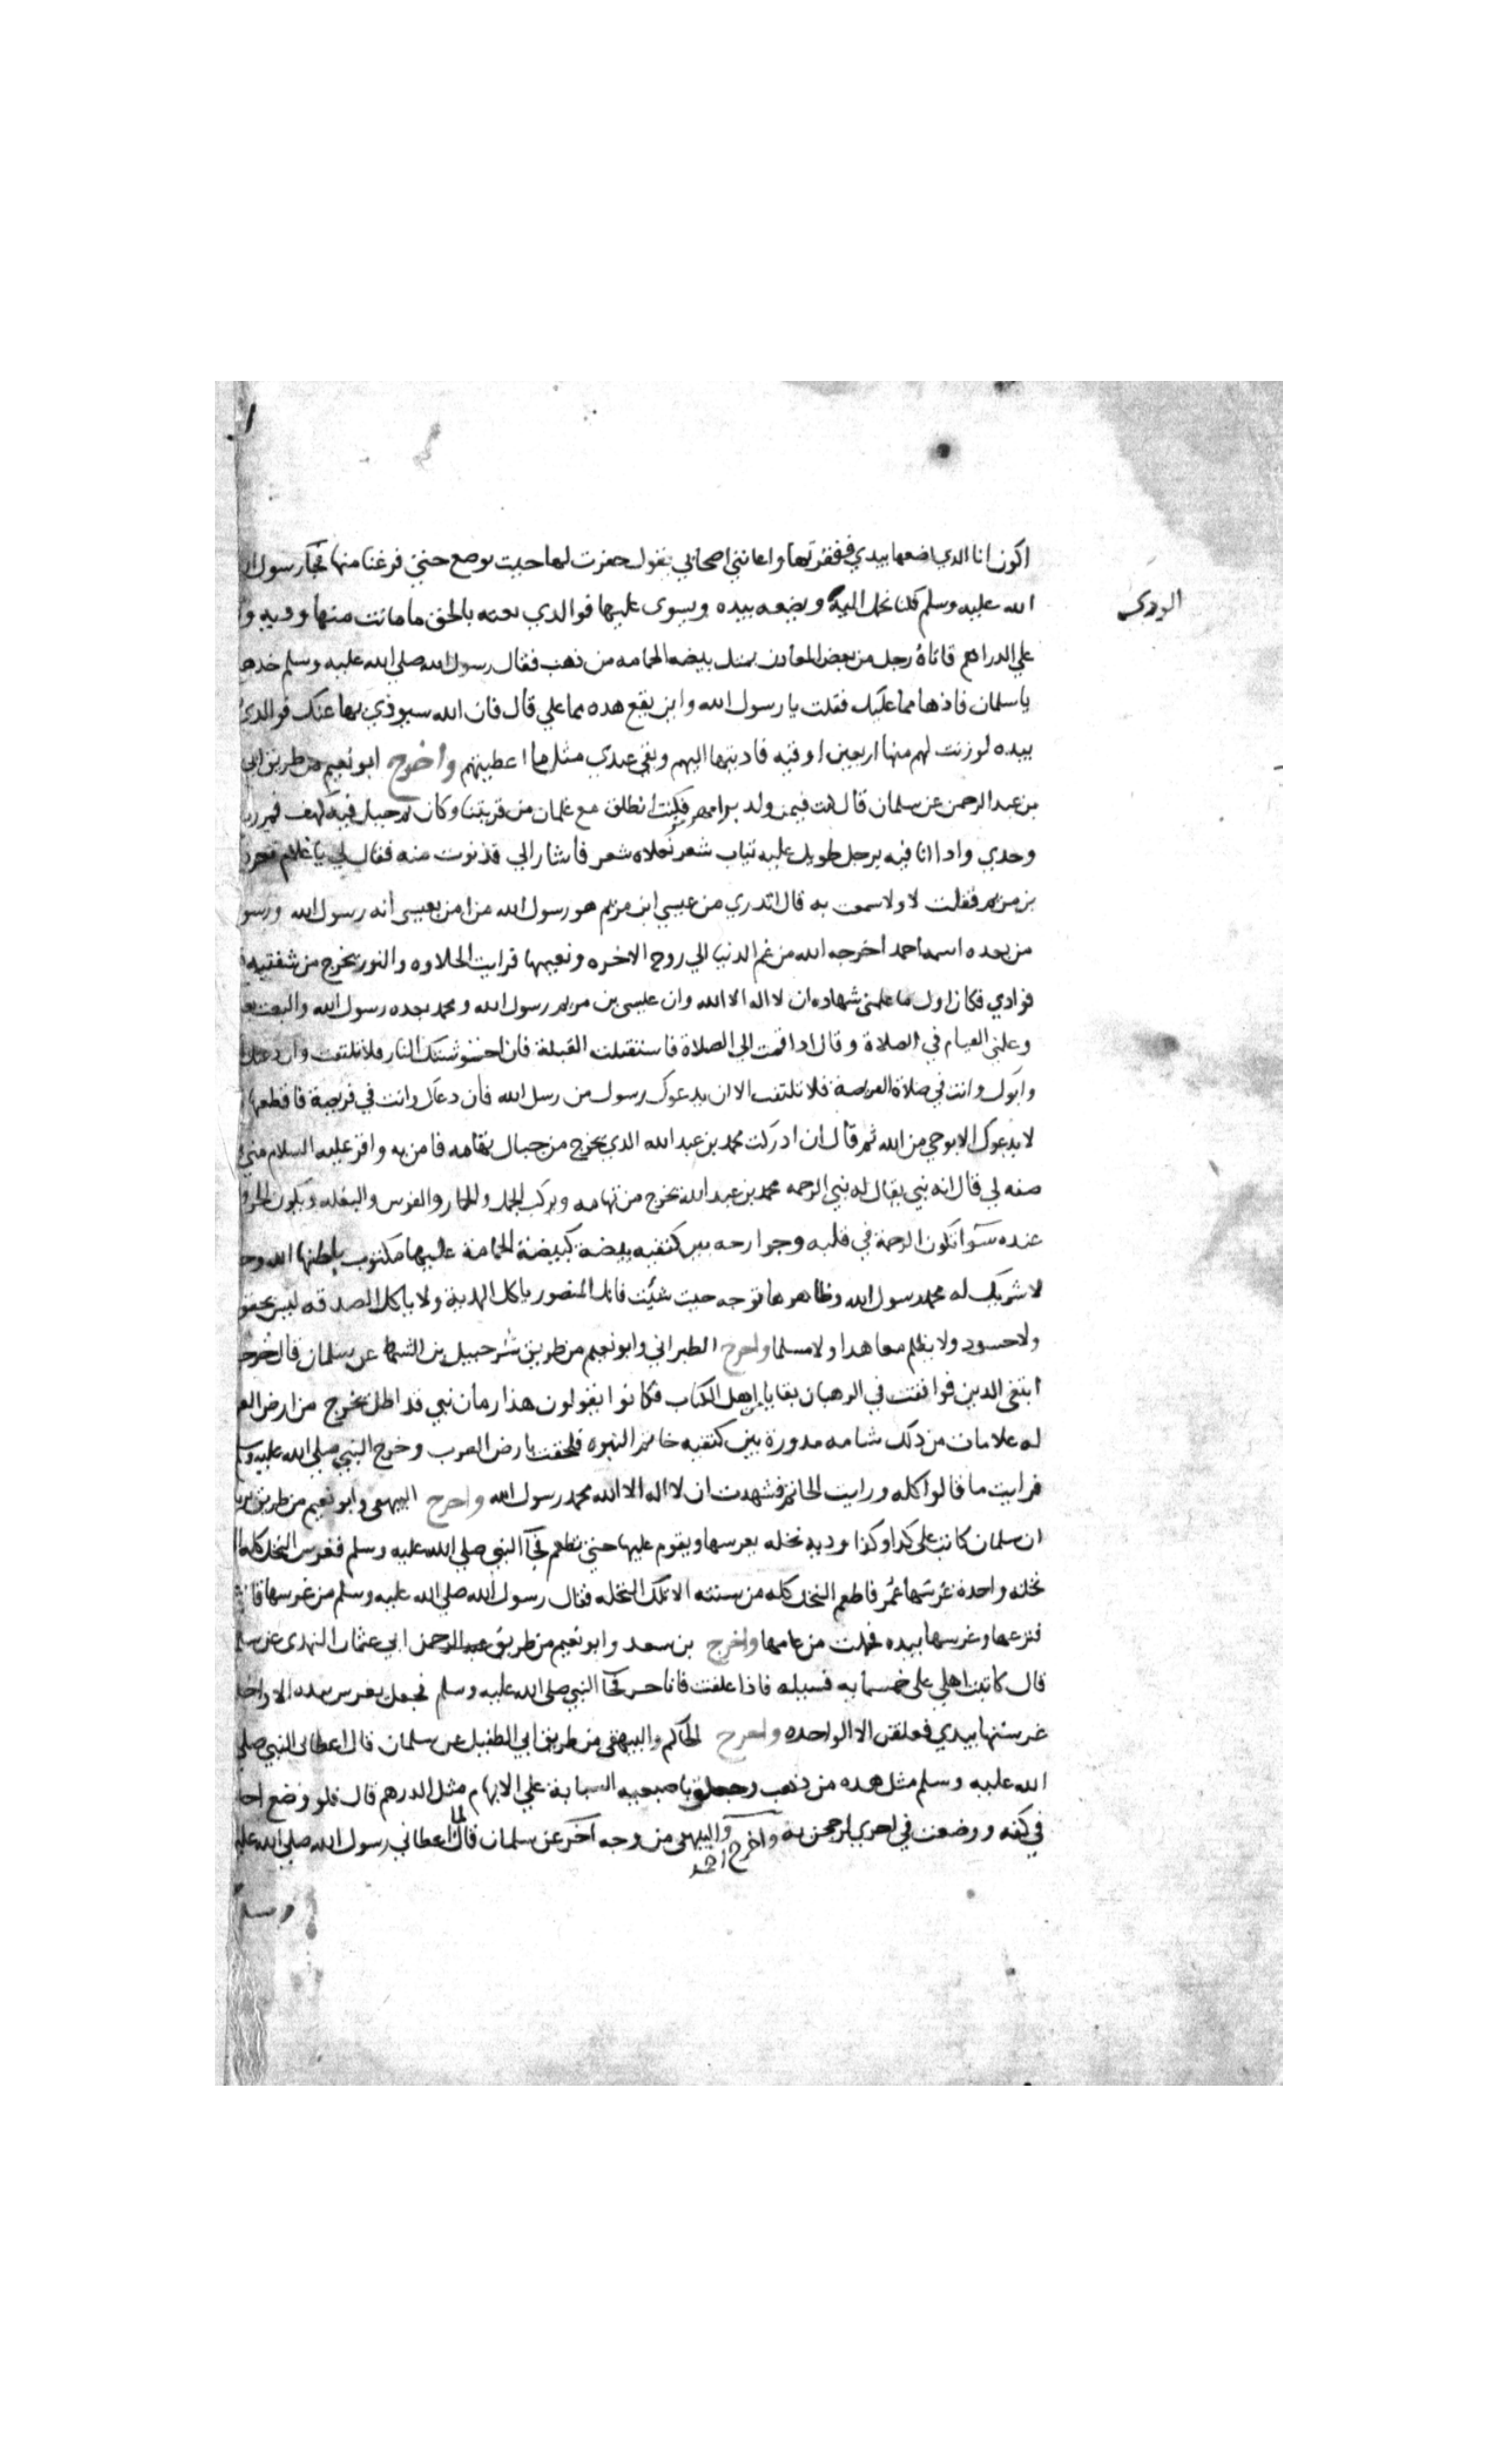 اكون انا الذي اضعها بيدي ففقرتها واعانني اصحابي يقول حفرت لها حيث توضع حتي فرغنا منها فجآ رسول
الودي
الله عليه وسلم فكنا نحمل اليه ويضعه بيده ويسوى عليها فوالذي بعثه بالحق ما ماتت منها وديه
علي الدراهم فاتاه رجل من بعض المعادن بمثل بيضه الحمامه من ذهب فقال رسول الله صلي الله عليه وسلم خدها
ياسلمان فادها مما عليك فقلت يا رسول الله واين يقع هده مما علي قال فان الله سيودي بها عنك فوالدي
بيده لوزنت لهم منها اربعين اوقيه فاديتها اليهم وبقي عندي مثل ما اعطيتهم واخرج ابو نعيم من طريق ابي
بن عبد الرحمن عن سلمان قال كنت فيمن ولد برامهرمز فكنت انطلق مع غلمان من قريتنا وكان ثم جبل فيه كهف فمررت
وحدي وادا انا فيه برجل طويل عليه تياب شعر نعلاه شعر فأشار الي فدنوت منه فقال لي يا غلام تعرف
بن مريم فقلت لا ولا سمعت به قال اتدري من عيسي ابن مريم هو رسول الله من امن بعيسي أنه رسول الله ورسو
من بعده اسمه احمد أخرجه الله من غم الدنيا الي روح الاخره ونعيمها فرايت الحلاوه والنور يخرج من شفتيه
فوادي فكان اول ما علمني شهاده ان لا اله الا الله وان عليسي بن مريم رسول الله ومحمد بعده رسول الله والبعث بعد
وعلمني القيام في الصلاة وقال ادا قمت الي الصلاة فاستقبلت القبلة فان احتوشتك النار فلا تلتفت وان دعتك
وابوك وانت في صلاة الفريضة فلا تلتفت الا ان يدعوك رسول من رسل الله فأن دعاك وانت في فريضة فاقطعها
لا يدعوك الا بوحي من الله ثم قال ان ادركت محمد بن عبد الله الدي يخرج من جبال تهامه فامن به واقر عليه السلام مني
صفه لي قال انه نبي يقال له نبي الرحمه محمد بن عبد الله يخرج من تهامه ويركب الجمل والحمار والفرس والبغله ويكون الحر و
عنده سوآ تكون الرحمة في قلبه وجوارحه بين كتفيه بيضة كبيضة الحمامة عليها مكتوب باطنها الله وحد
لا شريك له محمد رسول الله وظاهرها توجه حيث شئت فانك المنصور ياكل الهدية ولا ياكل الصدقه ليس بحقو
ولا حسود ولا يظلم معاهدا ولا مسلما واخرج الطبراني وابو نعيم من طريق شرحبيل بن السمط عن سلمان قال خرجت
ابتغي الدين فوافقت في الرهبان بقايا اهل الكتاب فكانوا يقولون هذا زمان نبي قد اظل يخرج من ارض العر
له علامات من ذلك شامه مدورة بين كتفيه خاتم النبوه فلحقت بارض العرب وخرج النبي صلي الله عليه وسلم
فرايت ما قالوا كله ورايت الخاتم فشهدت ان لا اله الا الله محمد رسول الله واخرج البيهقي وابو نعيم من طريق بر
ان سلمان كاتب علي كدا وكذا وديه نخله يغرسها ويقوم عليها حتي تطعم فجآ النبي صلي الله عليه وسلم فغرس النخل كله
نخله واحدة غرسها عمر فاطعم النخل كله من سنته الا تلك النخله فقال رسول الله صلي الله عليه وسلم من غرسها
فنزعها وغرسها بيده فحملت من عامها واخرج بن سعد وابو نعيم من طريق ابي عثمان النهدى عن سلم
قال كاتبت اهلي علي خمسمايه فسيله فاذا علقت فانا حر فجآ النبي صلي الله عليه وسلم فجعل يغرس بيده الا واحد
غرستها بيدي فعلقن الا الواحده واخرج الحاكم والبيهقي من طريق ابي الطفيل عن سلمان قال اعطاني النبي صلي
الله عليه وسلم مثل هده من ذهب وحلق باصبعيه السبابة علي الابهام مثل الدرهم قال فلو وضع احد
في كفه ووضعت في اخري لرجحن به واخرج احمد والبيهقي من وجه اخر عن سلمان قال لما اعطاني رسول الله صلي الله عليه
وسلم